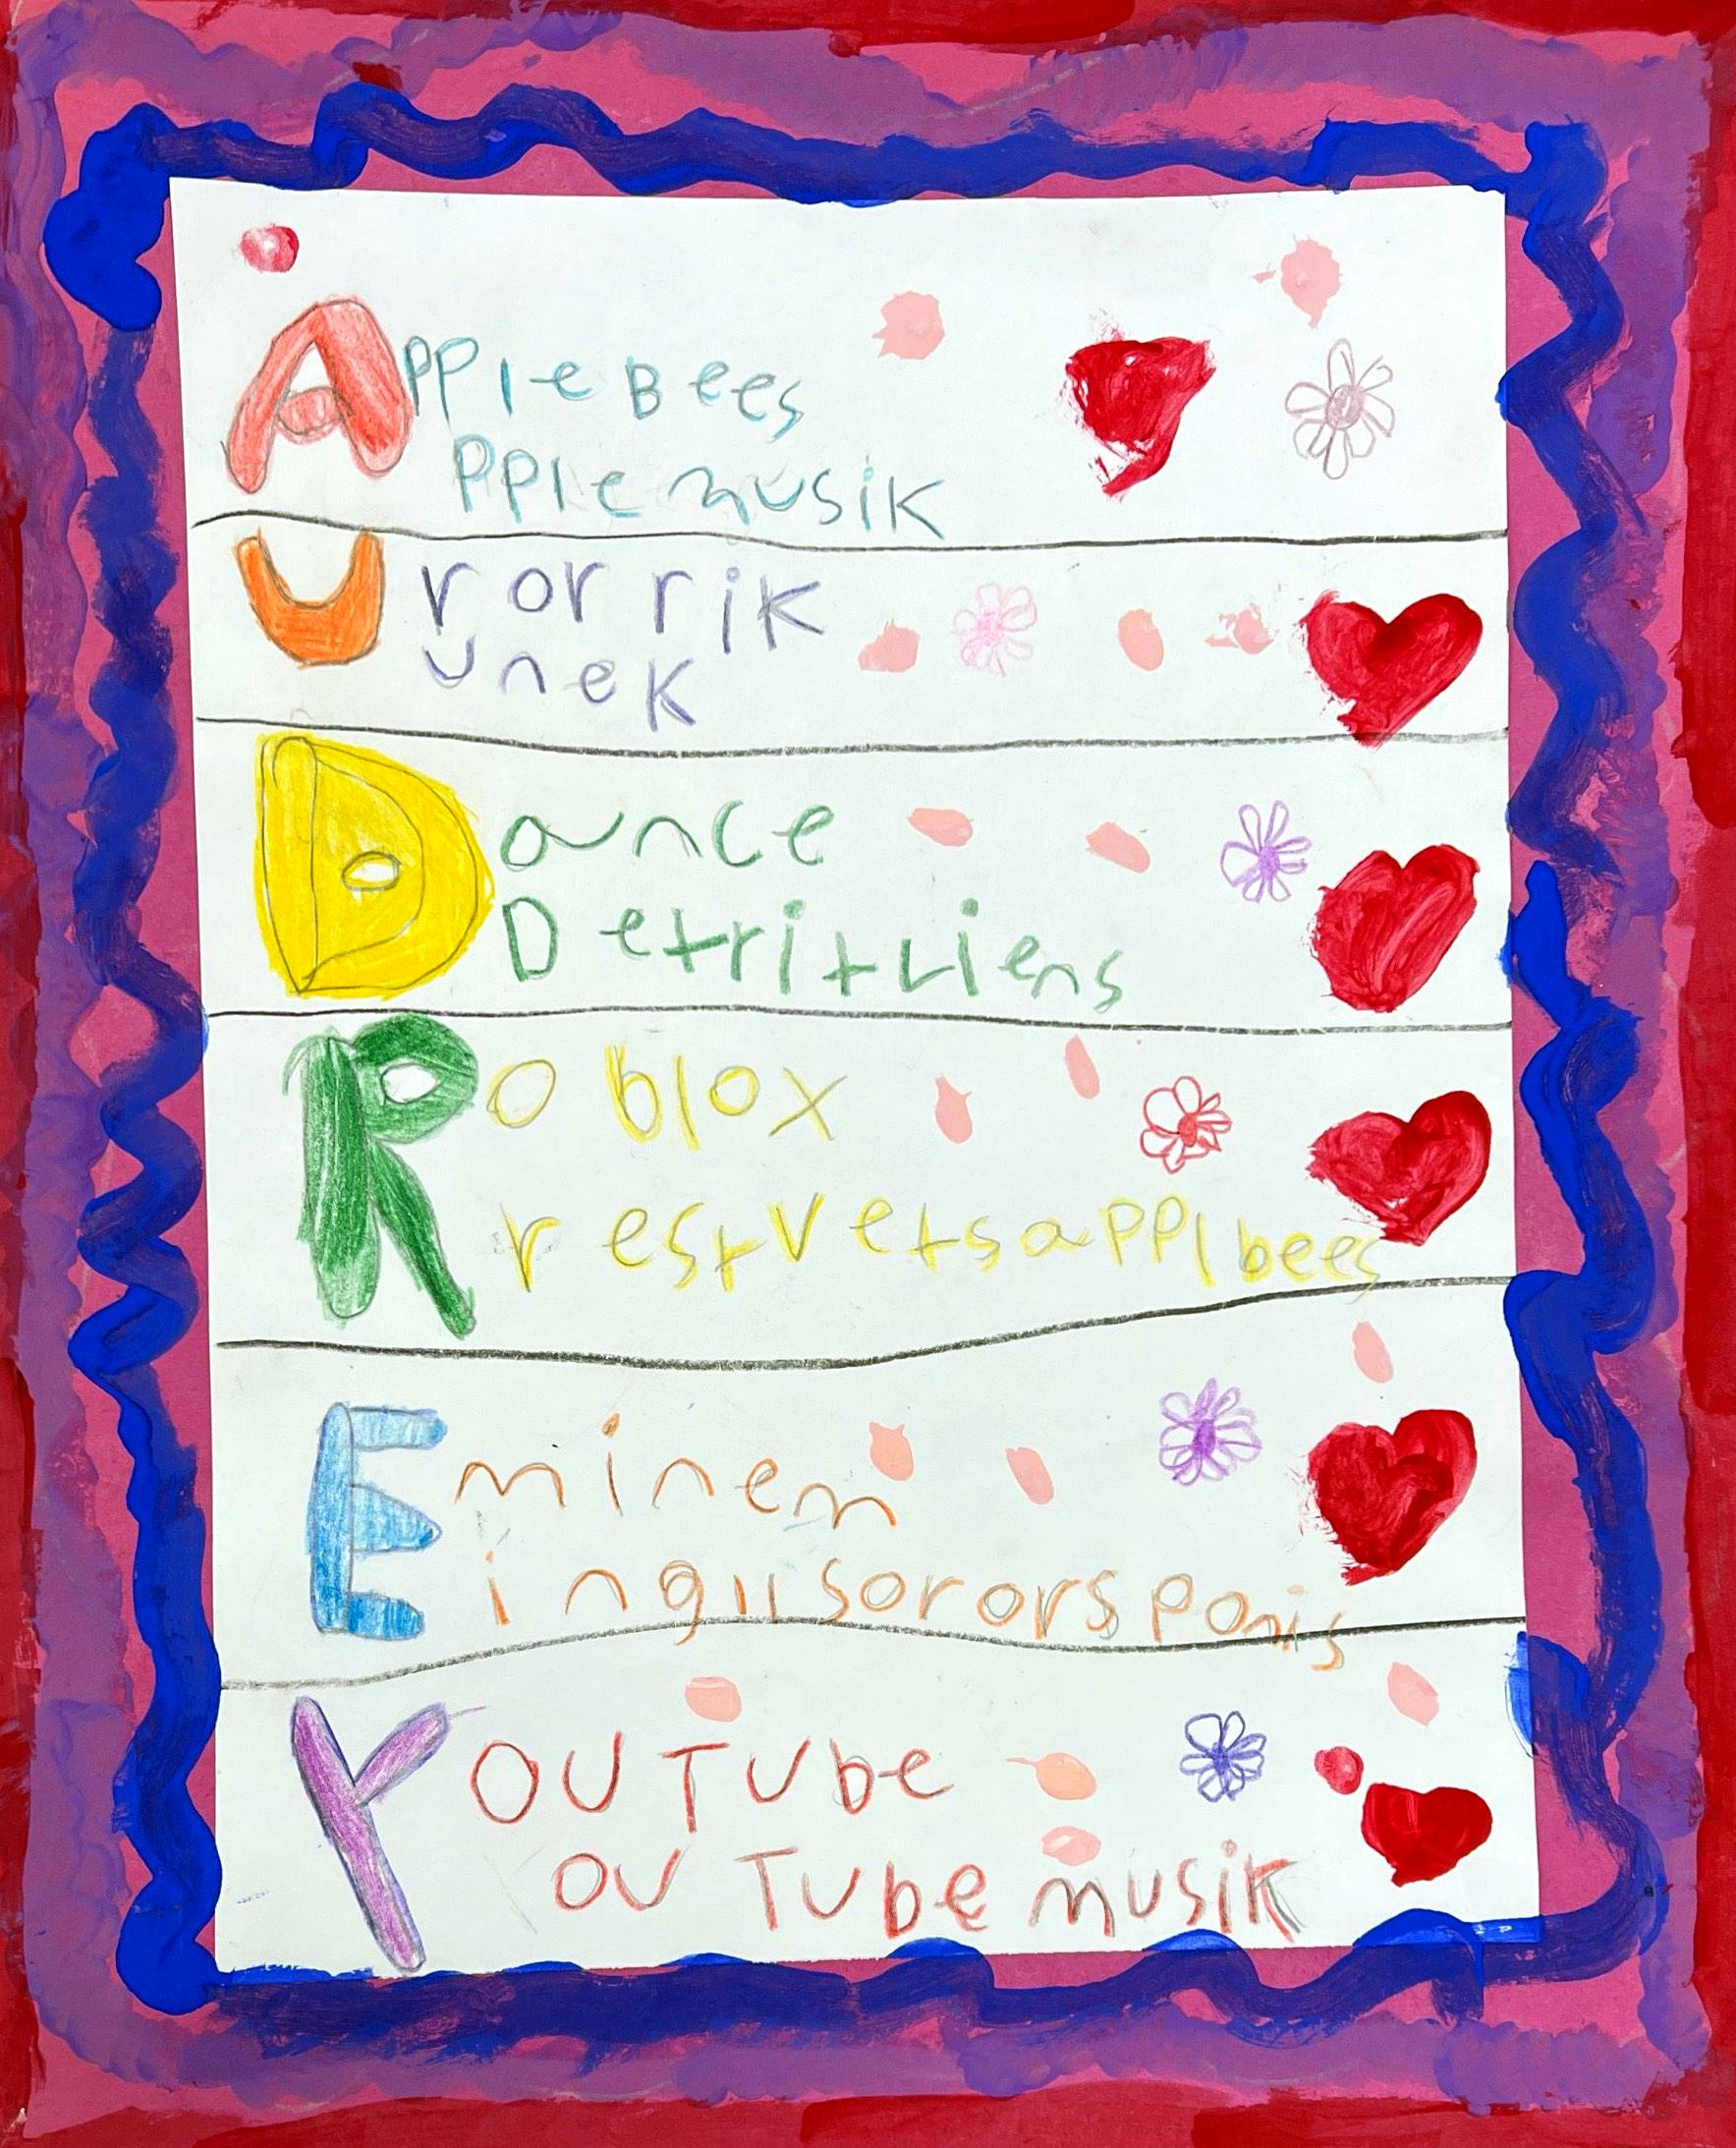 AppleBees
pplemusik
Urorrik
unek
Dance
Detritliens
Roblox
restvetsapplbees
Eminem
ingusororsponis
YouTube
ouTubemusik